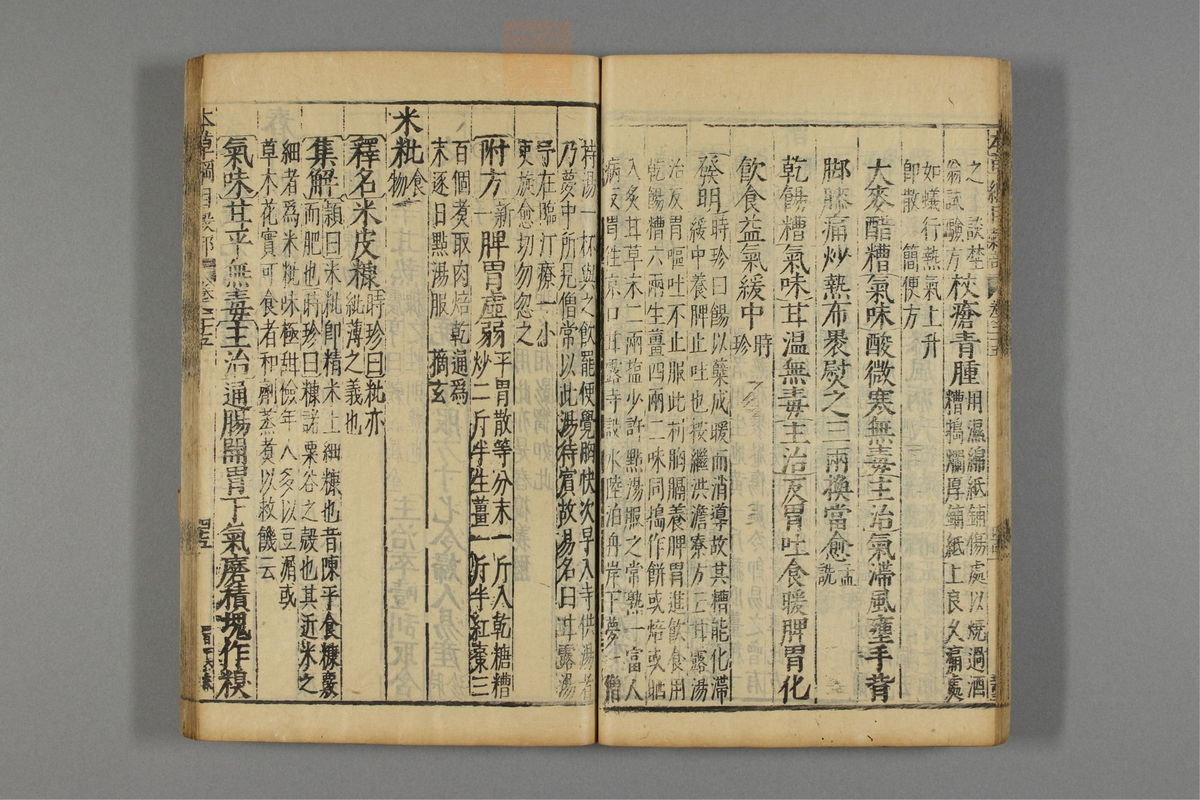 之 談埜
翁試驗方 杖瘡青腫 用濕綿紙鋪傷處以燒過酒
糟搗爛厚鋪紙上良久痛處
如蟻行熱氣上升
即散 簡便方
大麥醋糟氣味酸微寒無毒主治氣滯風壅手背
脚膝痛炒熱布裹熨之三兩換當愈 孟詵
乾餳糟氣味甘溫無毒主治反胃吐食暖脾胃化
飲食益氣緩中 時珍
發明 時珍曰餳以櫱成暖而消導故其糟能化滯
緩中養脾止吐也按繼洪澹寮方云甘露湯
治反胃嘔吐不止服此利胸膈養脾胃進飲食用
乾餳糟六兩生薑四兩二味同搗作餅或焙或晒
入炙甘草末二兩塩少許點湯服之常熟一富人
病反胃往京口甘露寺設水陸泊舟岸下夢一僧
持湯一杯與之飲罷便覺胸快次早入寺供湯者
乃夢中所見僧常以此湯待賓故易名曰甘露湯
予在臨汀療一小
吏旋愈切勿忽之
附方 新一 脾胃虛弱 平胃散等分末一斤入乾糖糟
炒二斤半生薑一斤半紅棗三
百個煮取肉焙乾通爲
末逐日點湯服 摘玄
米粃 食物
釋名米皮糠 時珍曰粃亦
粃薄之義也
集解 穎曰米粃即精米上細糠也昔陳平食糠覈
而肥也時珍曰糠諸粟谷之殼也其近米之
細者爲米粃味極甜儉年人多以豆屑或
草木花實可食者和劑蒸煮以救饑云
氣味甘平無毒主治通腸開胃下氣磨積塊作糗
本草綱目穀部 卷二十五